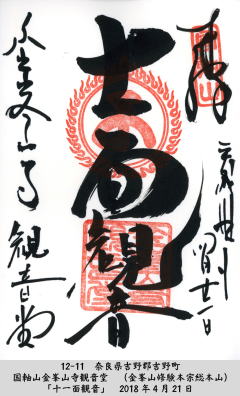 奉拝
十一面観音
金峯山寺 観音堂
12-11　奈良県吉野郡吉野町
国軸山金峯山寺観音堂　（金峯山修験本宗総本山）
「十一面観音」　2018年4月21日